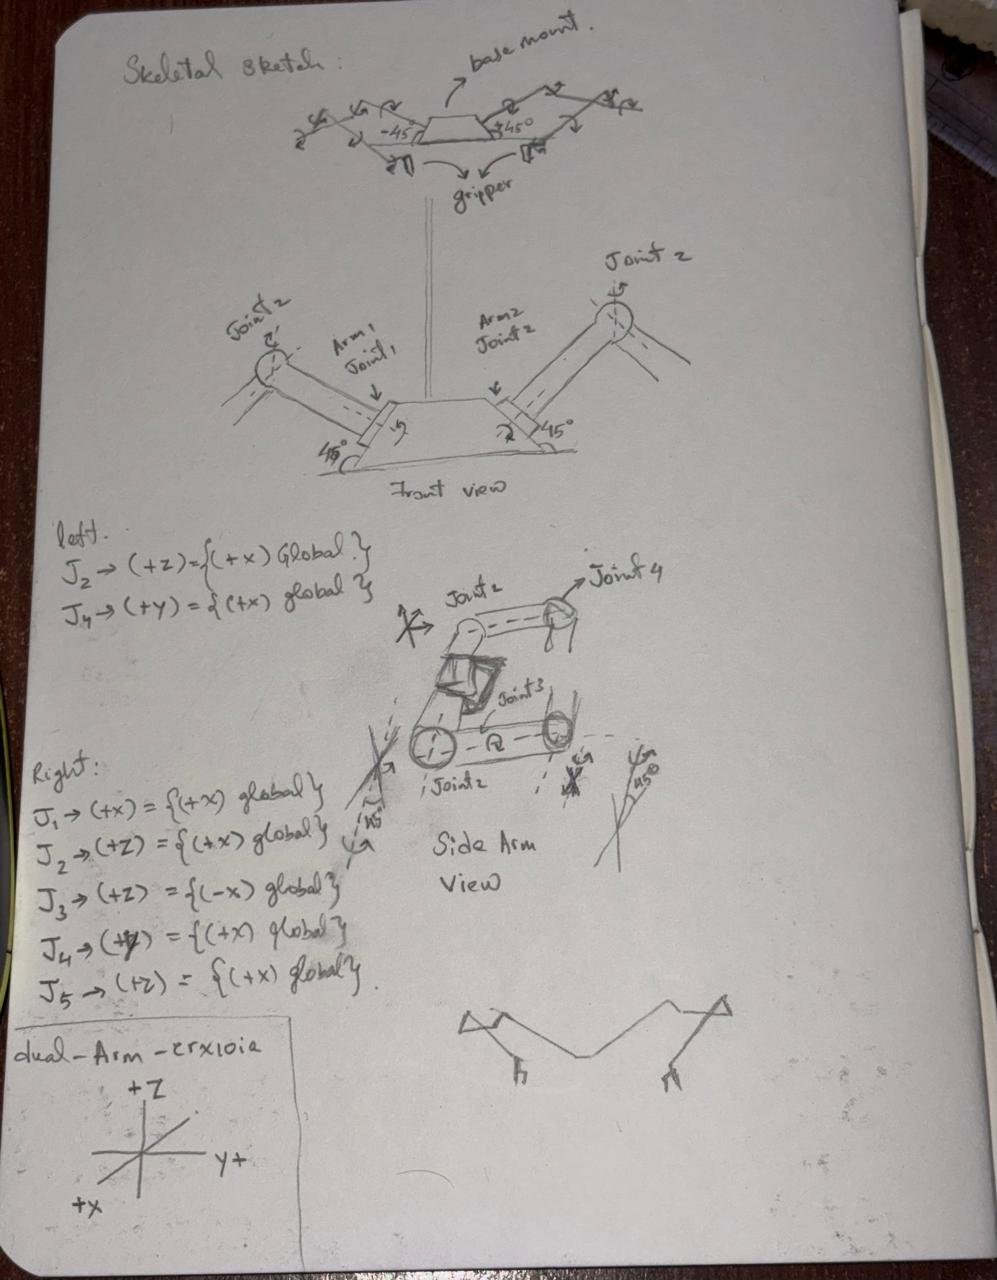 Skeletal sketch:
base mount.
-45°
+45°
gripper
Joint 2
Joint 2
Arm 1
Joint 1
Arm 2
Joint 2
45°
45°
Front view
left.
J2 → (+z) = {(+x) Global.}
J4 → (+y) = {(+x) global}
Joint 2
Joint 4
Joint 3
Joint 2
45°
45°
Side Arm
View
Right:
J1 → (+x) = {(+x) global}
J2 → (+z) = {(+x) global}
J3 → (+z) = {(-x) global}
J4 → (+y) = {(+x) global}
J5 → (+z) = {(+x) global}.
dual-Arm-crx10ia
+Z
Y+
+X